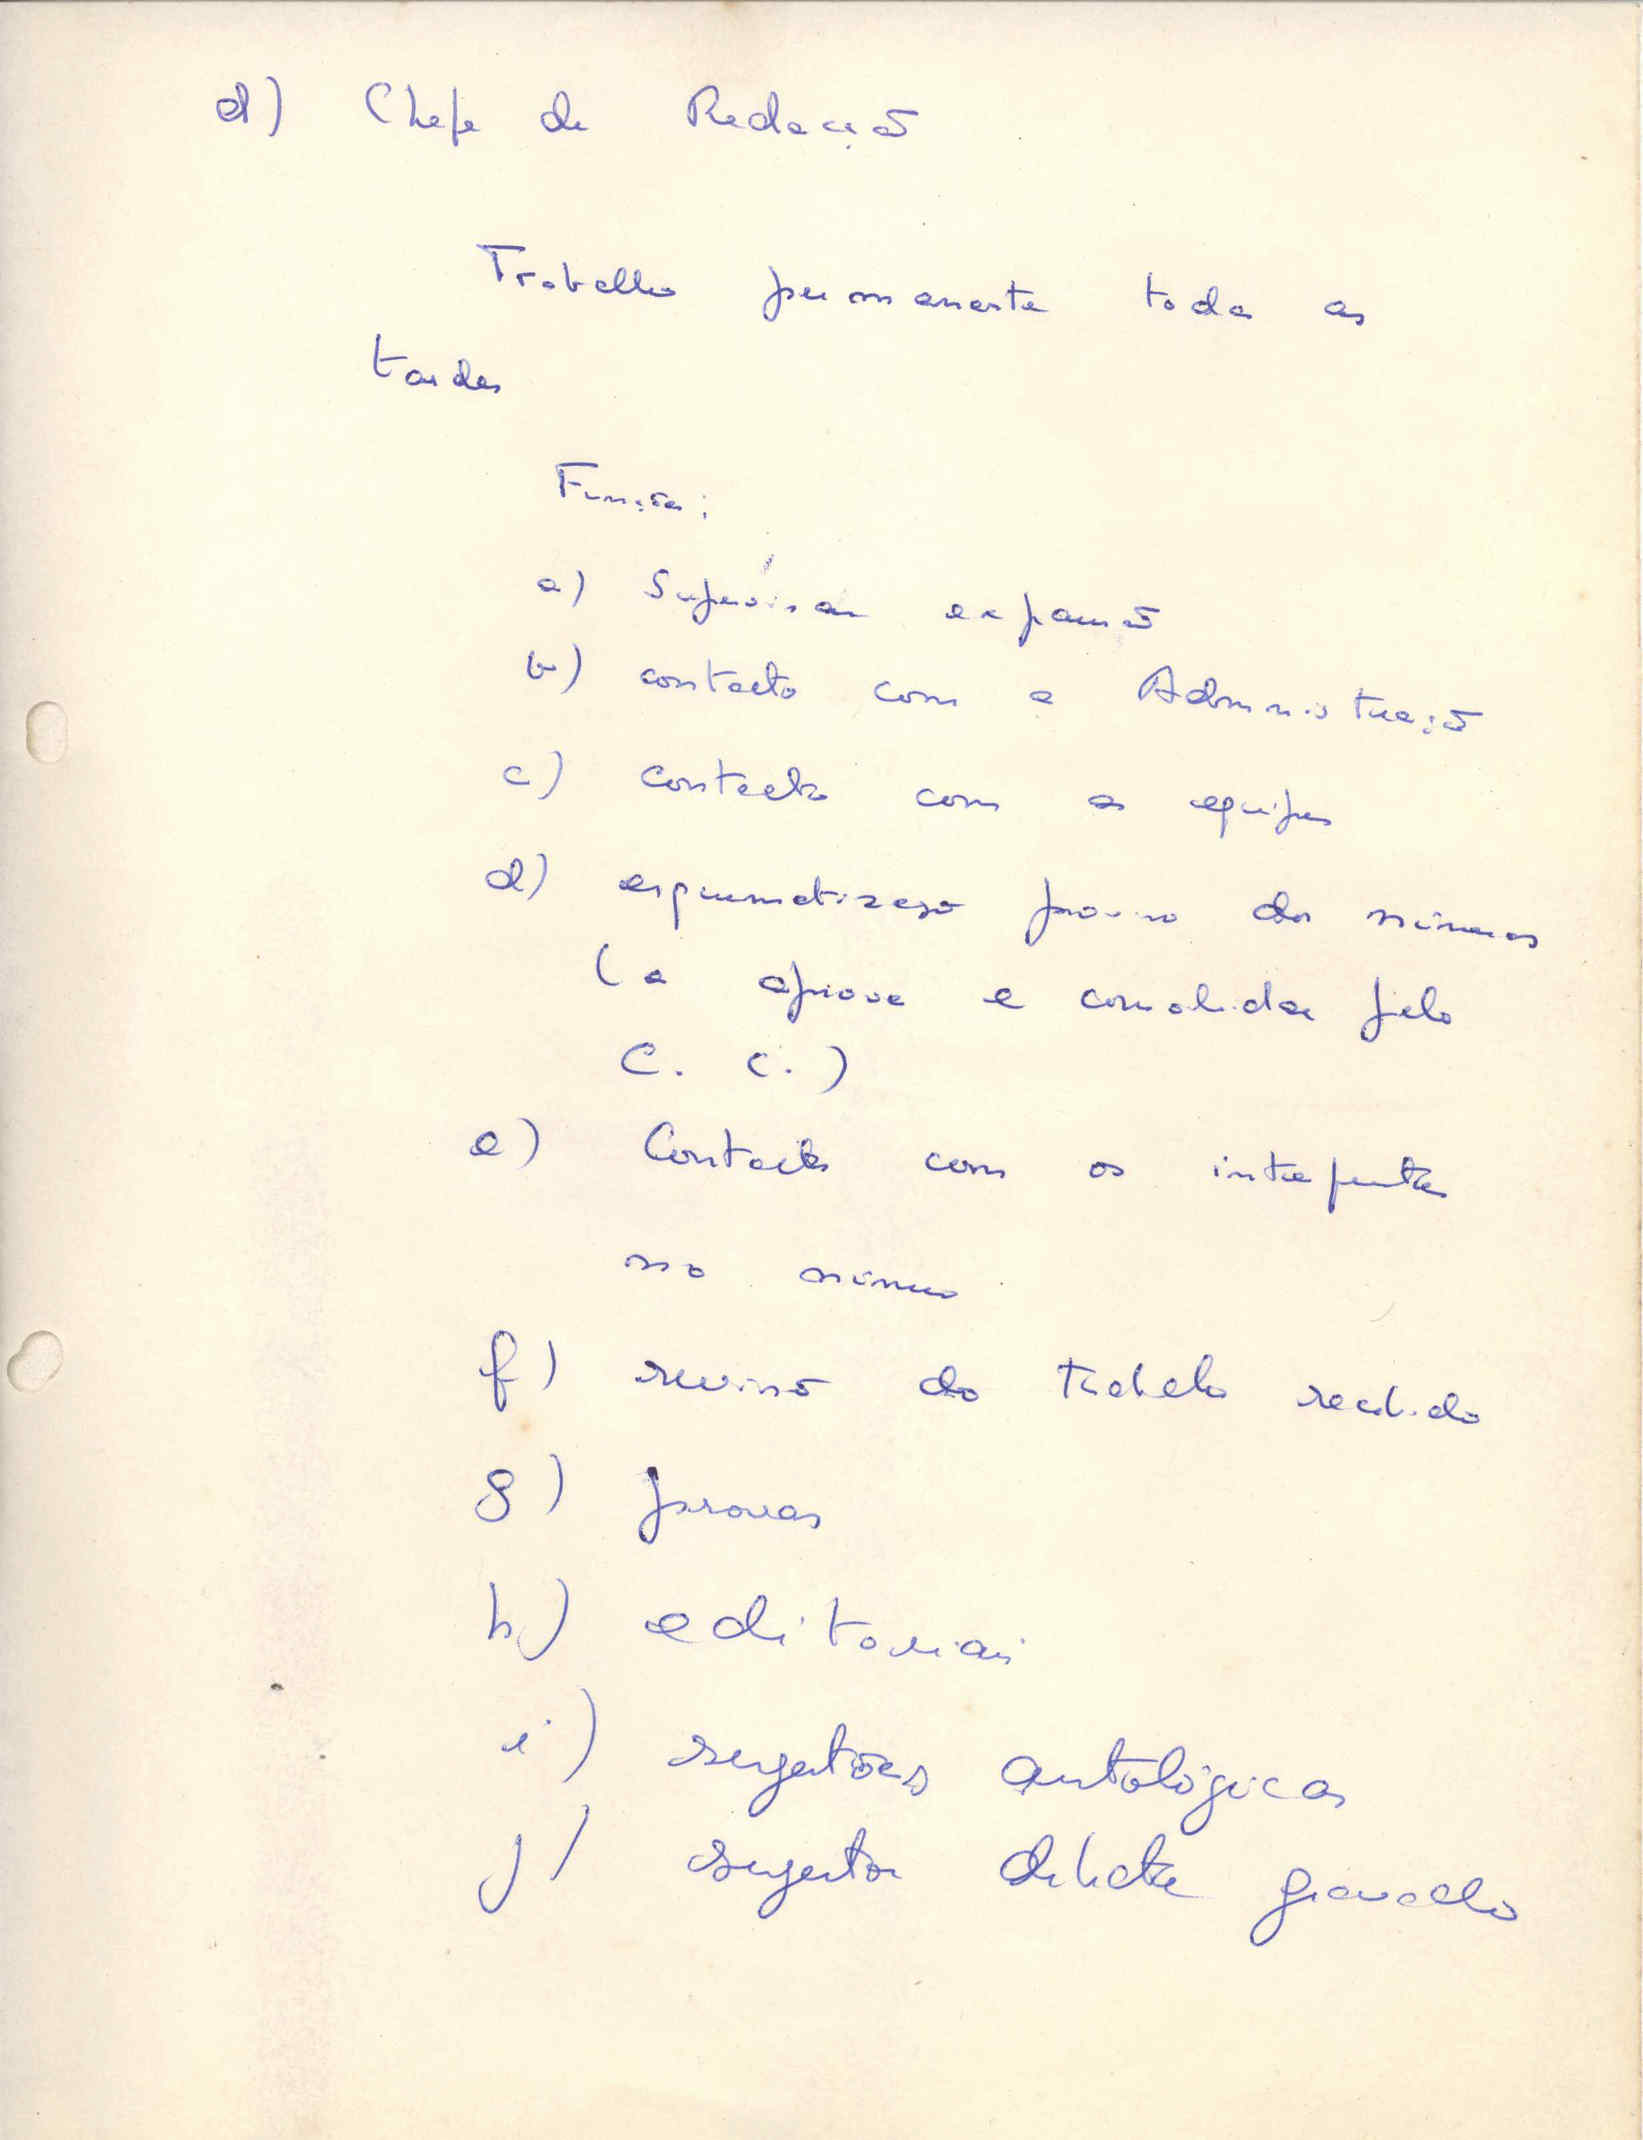 d) Chefe de Redacção
Trabalho permanente todas as
tardes
Funções:
a) Supervisar expansão
b) contacto com a Administração
c) contacto com as equipas
d) esquematização prévia dos números
(a aprovar e consolidar pelo
C. C.)
e) Contactos com os intérpretes
no número
f) revisão do trabalho recebido
g) provas
h) editoriais
i) sugestões antológicas
j) sugestões debate gravado